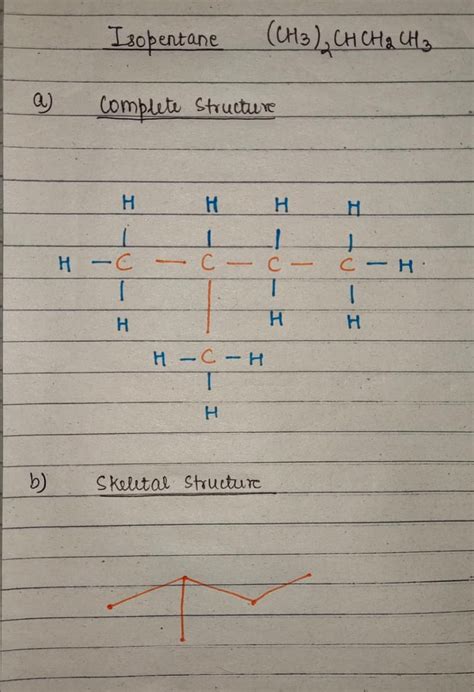 Isopentane (CH3)2CHCH2CH3
a) Complete Structure
H H H H
H – C – C – C – C – H
H H H
H – C – H
H
b) Skeletal Structure